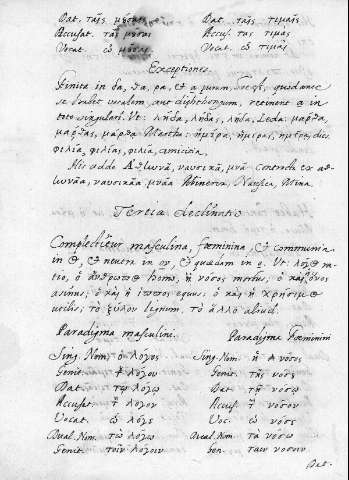 Dat. ταῖς μούσαις Dat. ταῖς τιμαῖς
Accusat. τὰς μούσας Accus. τὰς τιμὰς
Vocat. ὦ μοῦσαι Vocat. ὦ τιμαὶ
Exceptiones.
Finita in δα, θα, ρα, & α purum, hoc est, quod ante
se habet vocalem, aut diphthongum, retinent α in
singulari. Ut: λήδα, λήδας, λήδα, Leda: μάρθα,
μάρθας, μάρθα Martha: ἡμέρα, ἡμέρας, ἡμέρα, dies
φιλία, φιλίας, φιλία, amicitia.
His adde Ἀθηνᾶ, ναυσικᾶ, μνᾶ contracta ex
ναυσικάα μνάα Minerva, Nausica, Mina.
Tertia Declinatio
Complectitur masculina, foeminina, & communia
in ος, & neutra in ον, & quaedam in ο. Ut: λόγος
ratio, ὁ ἄνθρωπος homo, ἡ νόσος morbus, ὁ καὶ ἡ ὄνος
asinus; ὁ καὶ ἡ ἵππος equus; ὁ καὶ ἡ χρήσιμος
utilis; τὸ ξύλον lignum, τὸ ἄλλο aliud.
Paradigma masculini. Paradigma Foeminini
Sing. Nom. ὁ λόγος Sing. Nom. ἡ νόσος
Genit. λόγου Genit. τῆς νόσου
Dat. τῷ λόγῳ Dat. τῇ νόσῳ
Accusat. τὸν λόγον Accus. τὴν νόσον
Vocat. ὦ λόγε Voc. ὦ νόσε
Dual. Nom. τὼ λόγω Dual. Nom. τὰ νόσω
Genit. τοῖν λόγοιν Gen. ταῖν νόσοιν
Dat.